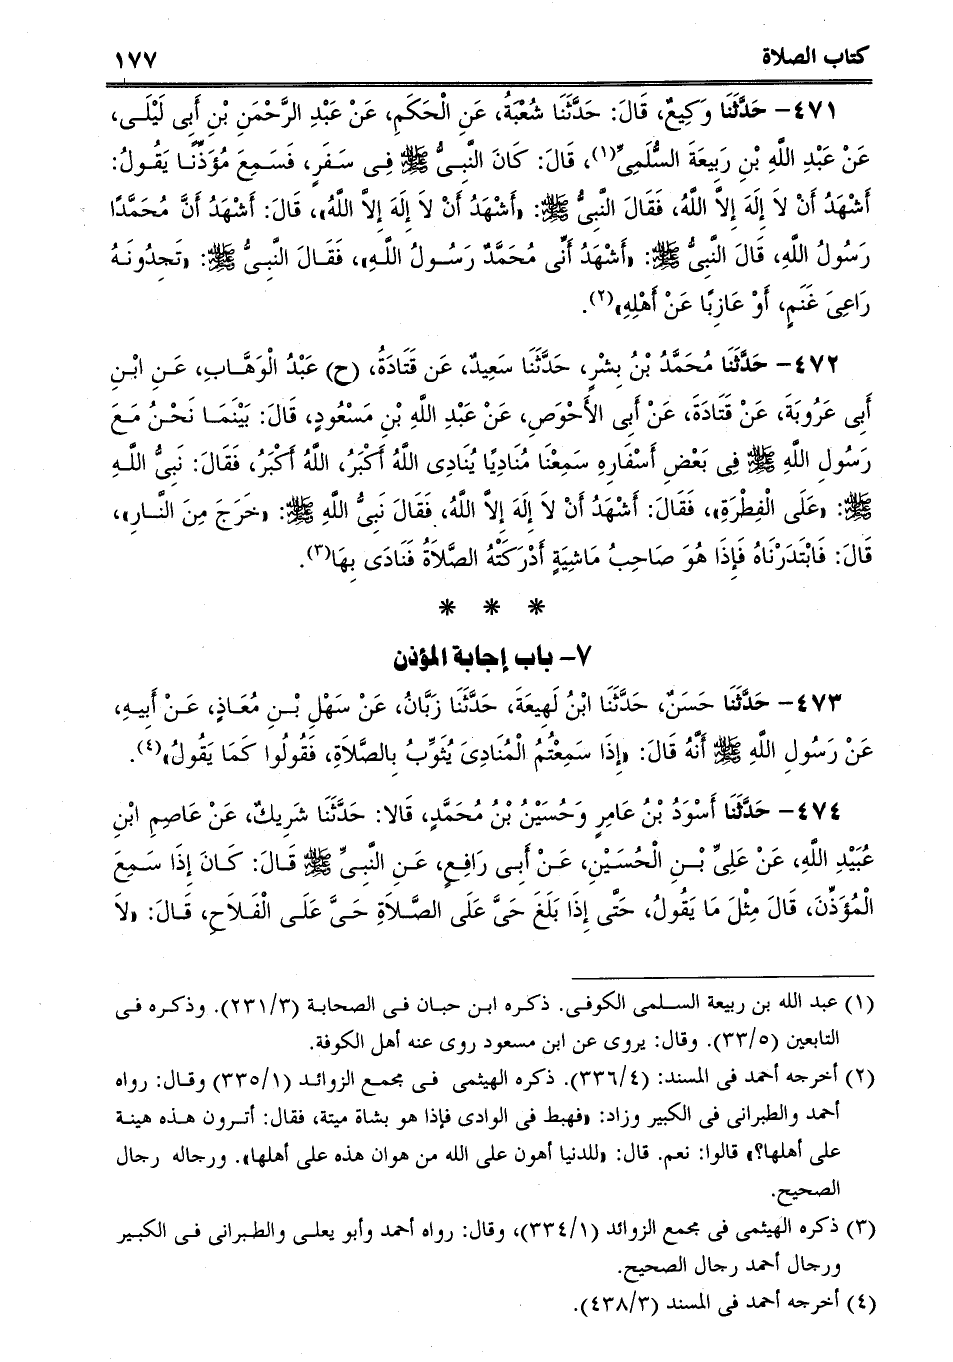 كتاب الصلاة ١٧٧
٤٧١- حَدَّثَنَا وَكِيعٌ، قَالَ: حَدَّثَنَا شُعْبَةُ، عَنِ الْحَكَمِ، عَنْ عَبْدِ الرَّحْمَنِ بْنِ أَبِى لَيْلَى،
عَنْ عَبْدِ اللَّهِ بْنِ رَبِيعَةَ السُّلَمِىِّ(١)، قَالَ: كَانَ النَّبِىُّ ﷺ فِى سَفَرٍ، فَسَمِعَ مُؤَذِّنًا يَقُولُ:
أَشْهَدُ أَنْ لاَ إِلَهَ إِلاَّ اللَّهُ، فَقَالَ النَّبِىُّ ﷺ: «أَشْهَدُ أَنْ لاَ إِلَهَ إِلاَّ اللَّهُ»، قَالَ: أَشْهَدُ أَنَّ مُحَمَّدًا
رَسُولُ اللَّهِ، قَالَ النَّبِىُّ ﷺ: «أَشْهَدُ أَنِّى مُحَمَّدٌ رَسُولُ اللَّهِ»، فَقَالَ النَّبِىُّ ﷺ: «تَجِدُونَهُ
رَاعِىَ غَنَمٍ، أَوْ عَازِبًا عَنْ أَهْلِهِ»(٢).
٤٧٢- حَدَّثَنَا مُحَمَّدُ بْنُ بِشْرٍ، حَدَّثَنَا سَعِيدٌ، عَن قَتَادَةُ، (ح) عَبْدُ الْوَهَّابِ، عَنِ ابْنِ
أَبِى عَرُوبَةَ، عَنْ قَتَادَةَ، عَنْ أَبِى الأَحْوَصِ، عَنْ عَبْدِ اللَّهِ بْنِ مَسْعُودٍ، قَالَ: بَيْنَمَا نَحْنُ مَعَ
رَسُولِ اللَّهِ ﷺ فِى بَعْضِ أَسْفَارِهِ سَمِعْنَا مُنَادِيًا يُنَادِى اللَّهُ أَكْبَرُ، اللَّهُ أَكْبَرُ، فَقَالَ: نَبِىُّ اللَّهِ
ﷺ: «عَلَى الْفِطْرَةِ»، فَقَالَ: أَشْهَدُ أَنْ لاَ إِلَهَ إِلاَّ اللَّهُ، فَقَالَ نَبِىُّ اللَّهِ ﷺ: «خَرَجَ مِنَ النَّارِ»،
قَالَ: فَابْتَدَرْنَاهُ فَإِذَا هُوَ صَاحِبُ مَاشِيَةٍ أَدْرَكَتْهُ الصَّلاَةُ فَنَادَى بِهَا(٣).
* * *
٧- باب إجابة المؤذن
٤٧٣- حَدَّثَنَا حَسَنٌ، حَدَّثَنَا ابْنُ لَهِيعَةَ، حَدَّثَنَا زَبَّانُ، عَنْ سَهْلِ بْنِ مُعَاذٍ، عَنْ أَبِيهِ،
عَنْ رَسُولِ اللَّهِ ﷺ أَنَّهُ قَالَ: «إِذَا سَمِعْتُمُ الْمُنَادِىَ يُثَوِّبُ بِالصَّلاَةِ، فَقُولُوا كَمَا يَقُولُ»(٤).
٤٧٤- حَدَّثَنَا أَسْوَدُ بْنُ عَامِرٍ وَحُسَيْنُ بْنُ مُحَمَّدٍ، قَالا: حَدَّثَنَا شَرِيكٌ، عَنْ عَاصِمِ ابْنِ
عُبَيْدِ اللَّهِ، عَنْ عَلِىِّ بْنِ الْحُسَيْنِ، عَنْ أَبِى رَافِعٍ، عَنِ النَّبِىِّ ﷺ قَالَ: كَانَ إِذَا سَمِعَ
الْمُؤَذِّنَ، قَالَ مِثْلَ مَا يَقُولُ، حَتَّى إِذَا بَلَغَ حَىَّ عَلَى الصَّلاَةِ حَىَّ عَلَى الْفَلاَحِ، قَالَ: «لاَ
(١) عبد الله بن ربيعة السلمى الكوفى. ذكره ابن حبان فى الصحابة (٢٣١/٣). وذكره فى
التابعين (٣٣/٥). وقال: يروى عن ابن مسعود روى عنه أهل الكوفة.
(٢) أخرجه أحمد فى المسند: (٣٣٦/٤). ذكره الهيثمى فى مجمع الزوائد (٣٣٥/١) وقال: رواه
أحمد والطبرانى فى الكبير وزاد: «فهبط فى الوادى فإذا هو بشاة ميتة، فقال: أترون هذه هينة
على أهلها؟» قالوا: نعم. قال: «للدنيا أهون على الله من هوان هذه على أهلها». ورجاله رجال
الصحيح.
(٣) ذكره الهيثمى فى مجمع الزوائد (٣٣٤/١)، وقال: رواه أحمد وأبو يعلى والطبرانى فى الكبير
ورجال أحمد رجال الصحيح.
(٤) أخرجه أحمد فى المسند (٤٣٨/٣).